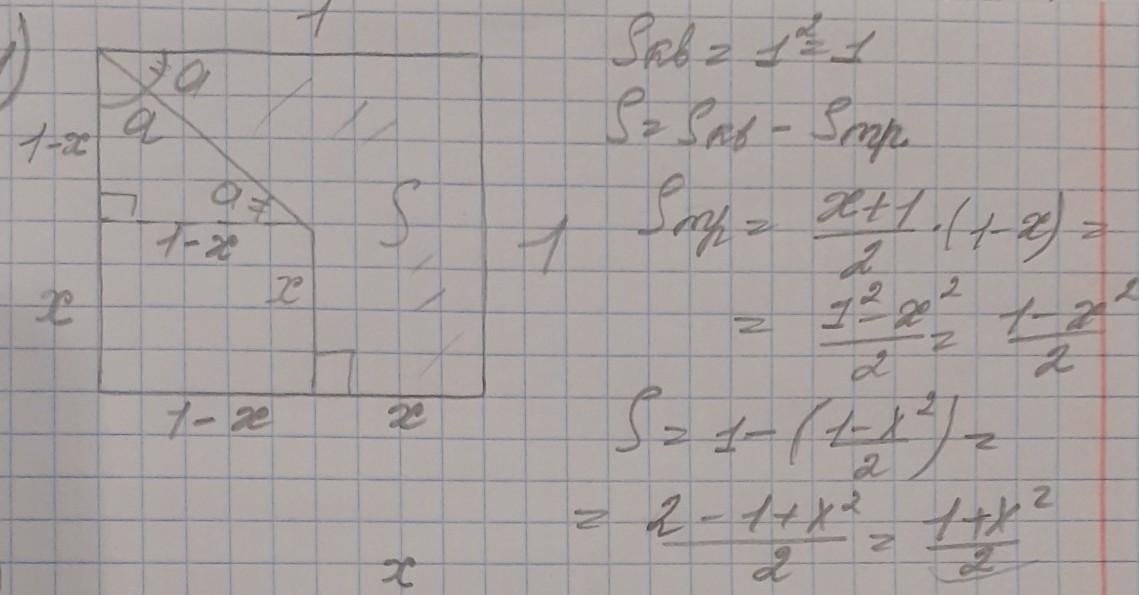 1)
1
a
a
1-x
a
1-x
S
1
x
x
1-x
x
x
Sкв = 1² = 1
S = Sкв - Sтр.
Sтр = \frac{x+1}{2} · (1-x) =
= \frac{1²-x²}{2} = \frac{1-x²}{2}
S = 1 - (\frac{1-x²}{2}) =
= \frac{2-1+x²}{2} = \frac{1+x²}{2}